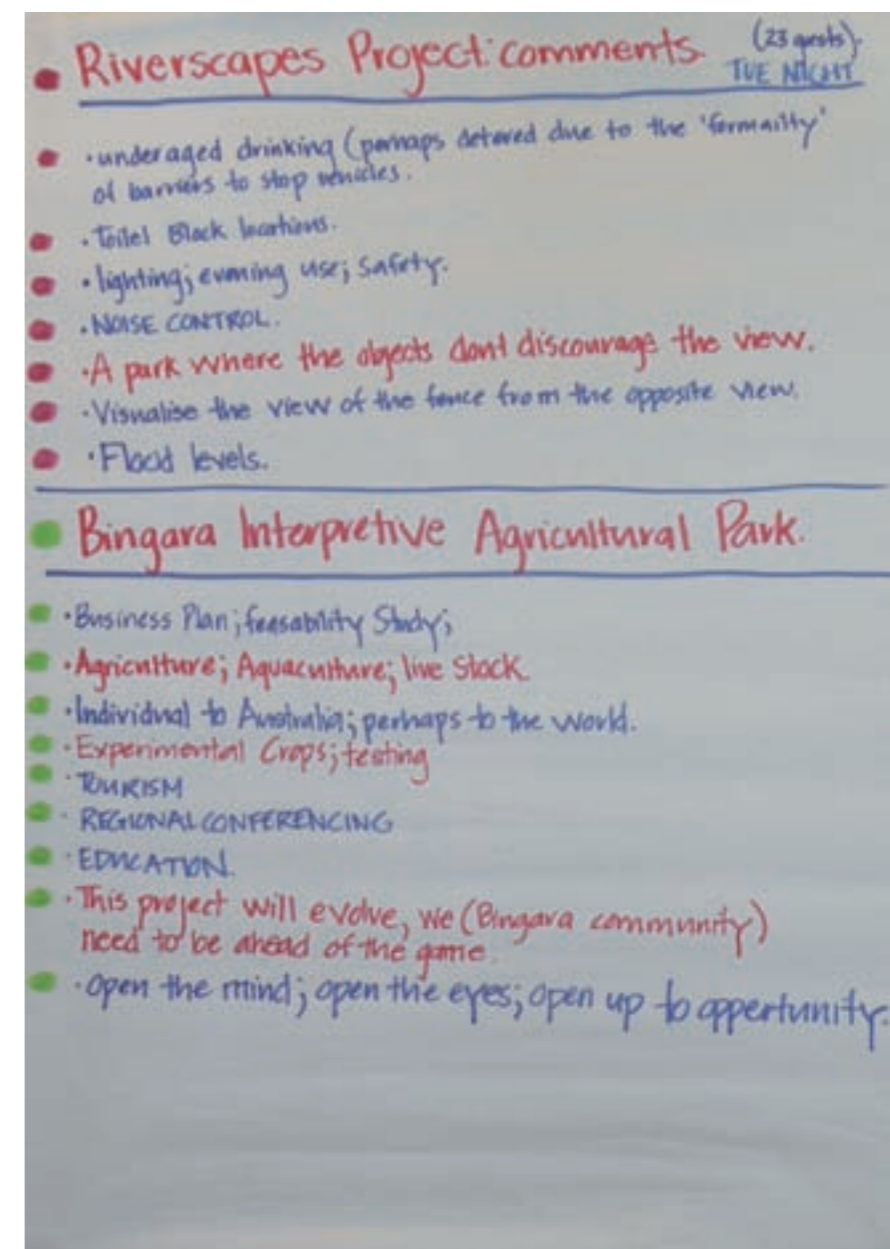 Riverscapes Project: comments. (23 guests).
TUE NIGHT
· underaged drinking (perhaps detered due to the 'formailty'
of barriers to stop vehicles.
· Toilet Block locations.
· lighting; evening use; safety.
· NOISE CONTROL.
· A park where the objects dont discourage the view.
· Visualise the view of the fence from the opposite view.
· Flood levels.
Bingara Interpretive Agricultural Park.
· Business Plan; feasability Study;
· Agriculture; Aquaculture; live stock.
· Individual to Australia; perhaps to the world.
· Experimental Crops; testing
· TOURISM
· REGIONAL CONFERENCING
· EDUCATION.
· This project will evolve, we (Bingara community)
need to be ahead of the game.
· Open the mind; open the eyes; open up to oppertunity.